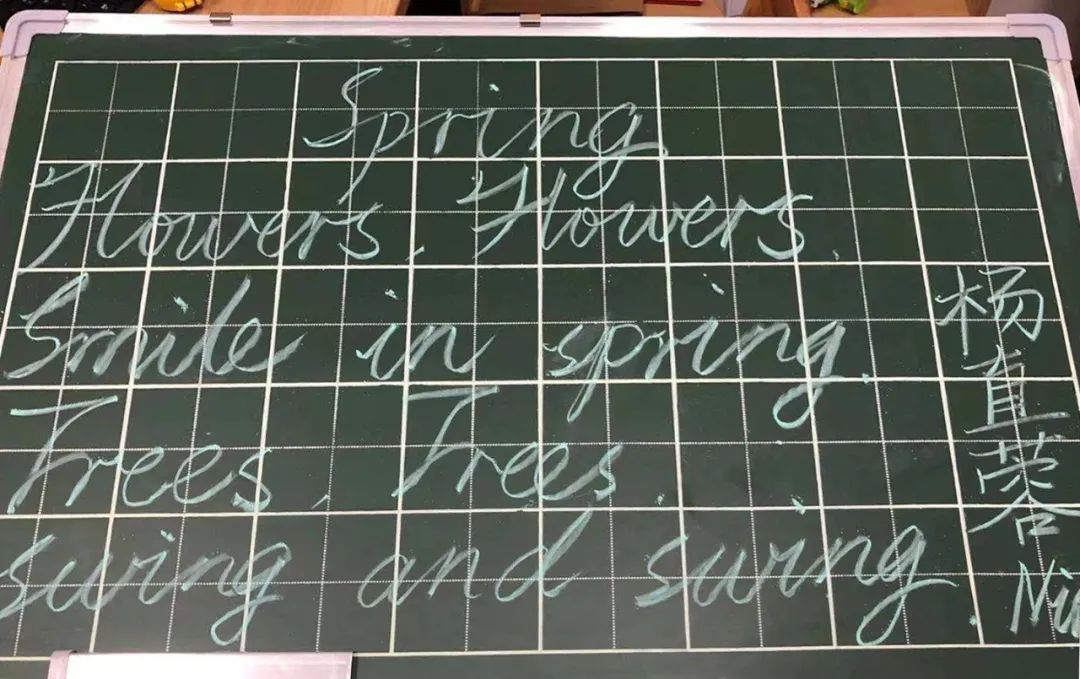 Spring
Flowers, Flowers.
Smile in spring.
Trees, Trees.
swing and swing.
杨直蓉